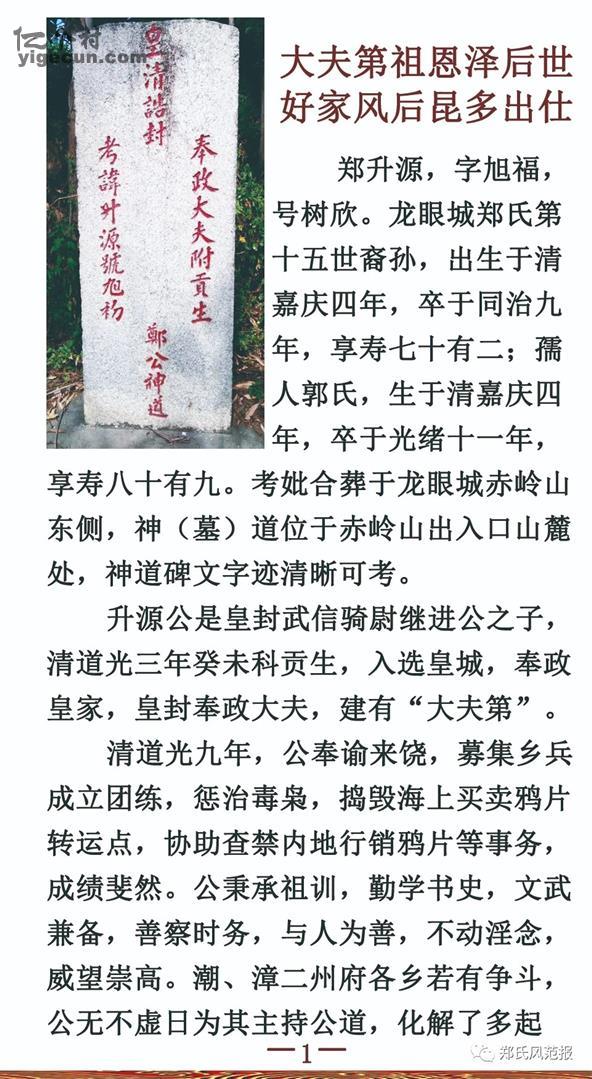 亿个村
yigecun.com
皇清誥封
奉政大夫附貢生
考諱升源號旭初
鄭公神道
大夫第祖恩泽后世
好家风后昆多出仕
郑升源，字旭福，
号树欣。龙眼城郑氏第
十五世裔孙，出生于清
嘉庆四年，卒于同治九
年，享寿七十有二；孺
人郭氏，生于清嘉庆四
年，卒于光绪十一年，
享寿八十有九。考妣合葬于龙眼城赤岭山
东侧，神（墓）道位于赤岭山出入口山麓
处，神道碑文字迹清晰可考。
升源公是皇封武信骑尉继进公之子，
清道光三年癸未科贡生，入选皇城，奉政
皇家，皇封奉政大夫，建有“大夫第”。
清道光九年，公奉谕来饶，募集乡兵
成立团练，惩治毒枭，捣毁海上买卖鸦片
转运点，协助查禁内地行销鸦片等事务，
成绩斐然。公秉承祖训，勤学书史，文武
兼备，善察时务，与人为善，不动淫念，
威望崇高。潮、漳二州府各乡若有争斗，
公无不虚日为其主持公道，化解了多起
1
郑氏风范报